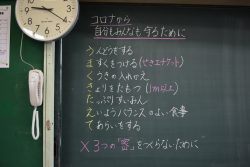 コロナから
自分もみんなも守るために
うんどうをする
ますくをつける(せきエチケット)
くうきの入れかえ
きょりをたもつ(1m以上)
たっぷりすいみん
えいようバランスのよい食事
てあらいをする
X 3つの"密"をつくらないために